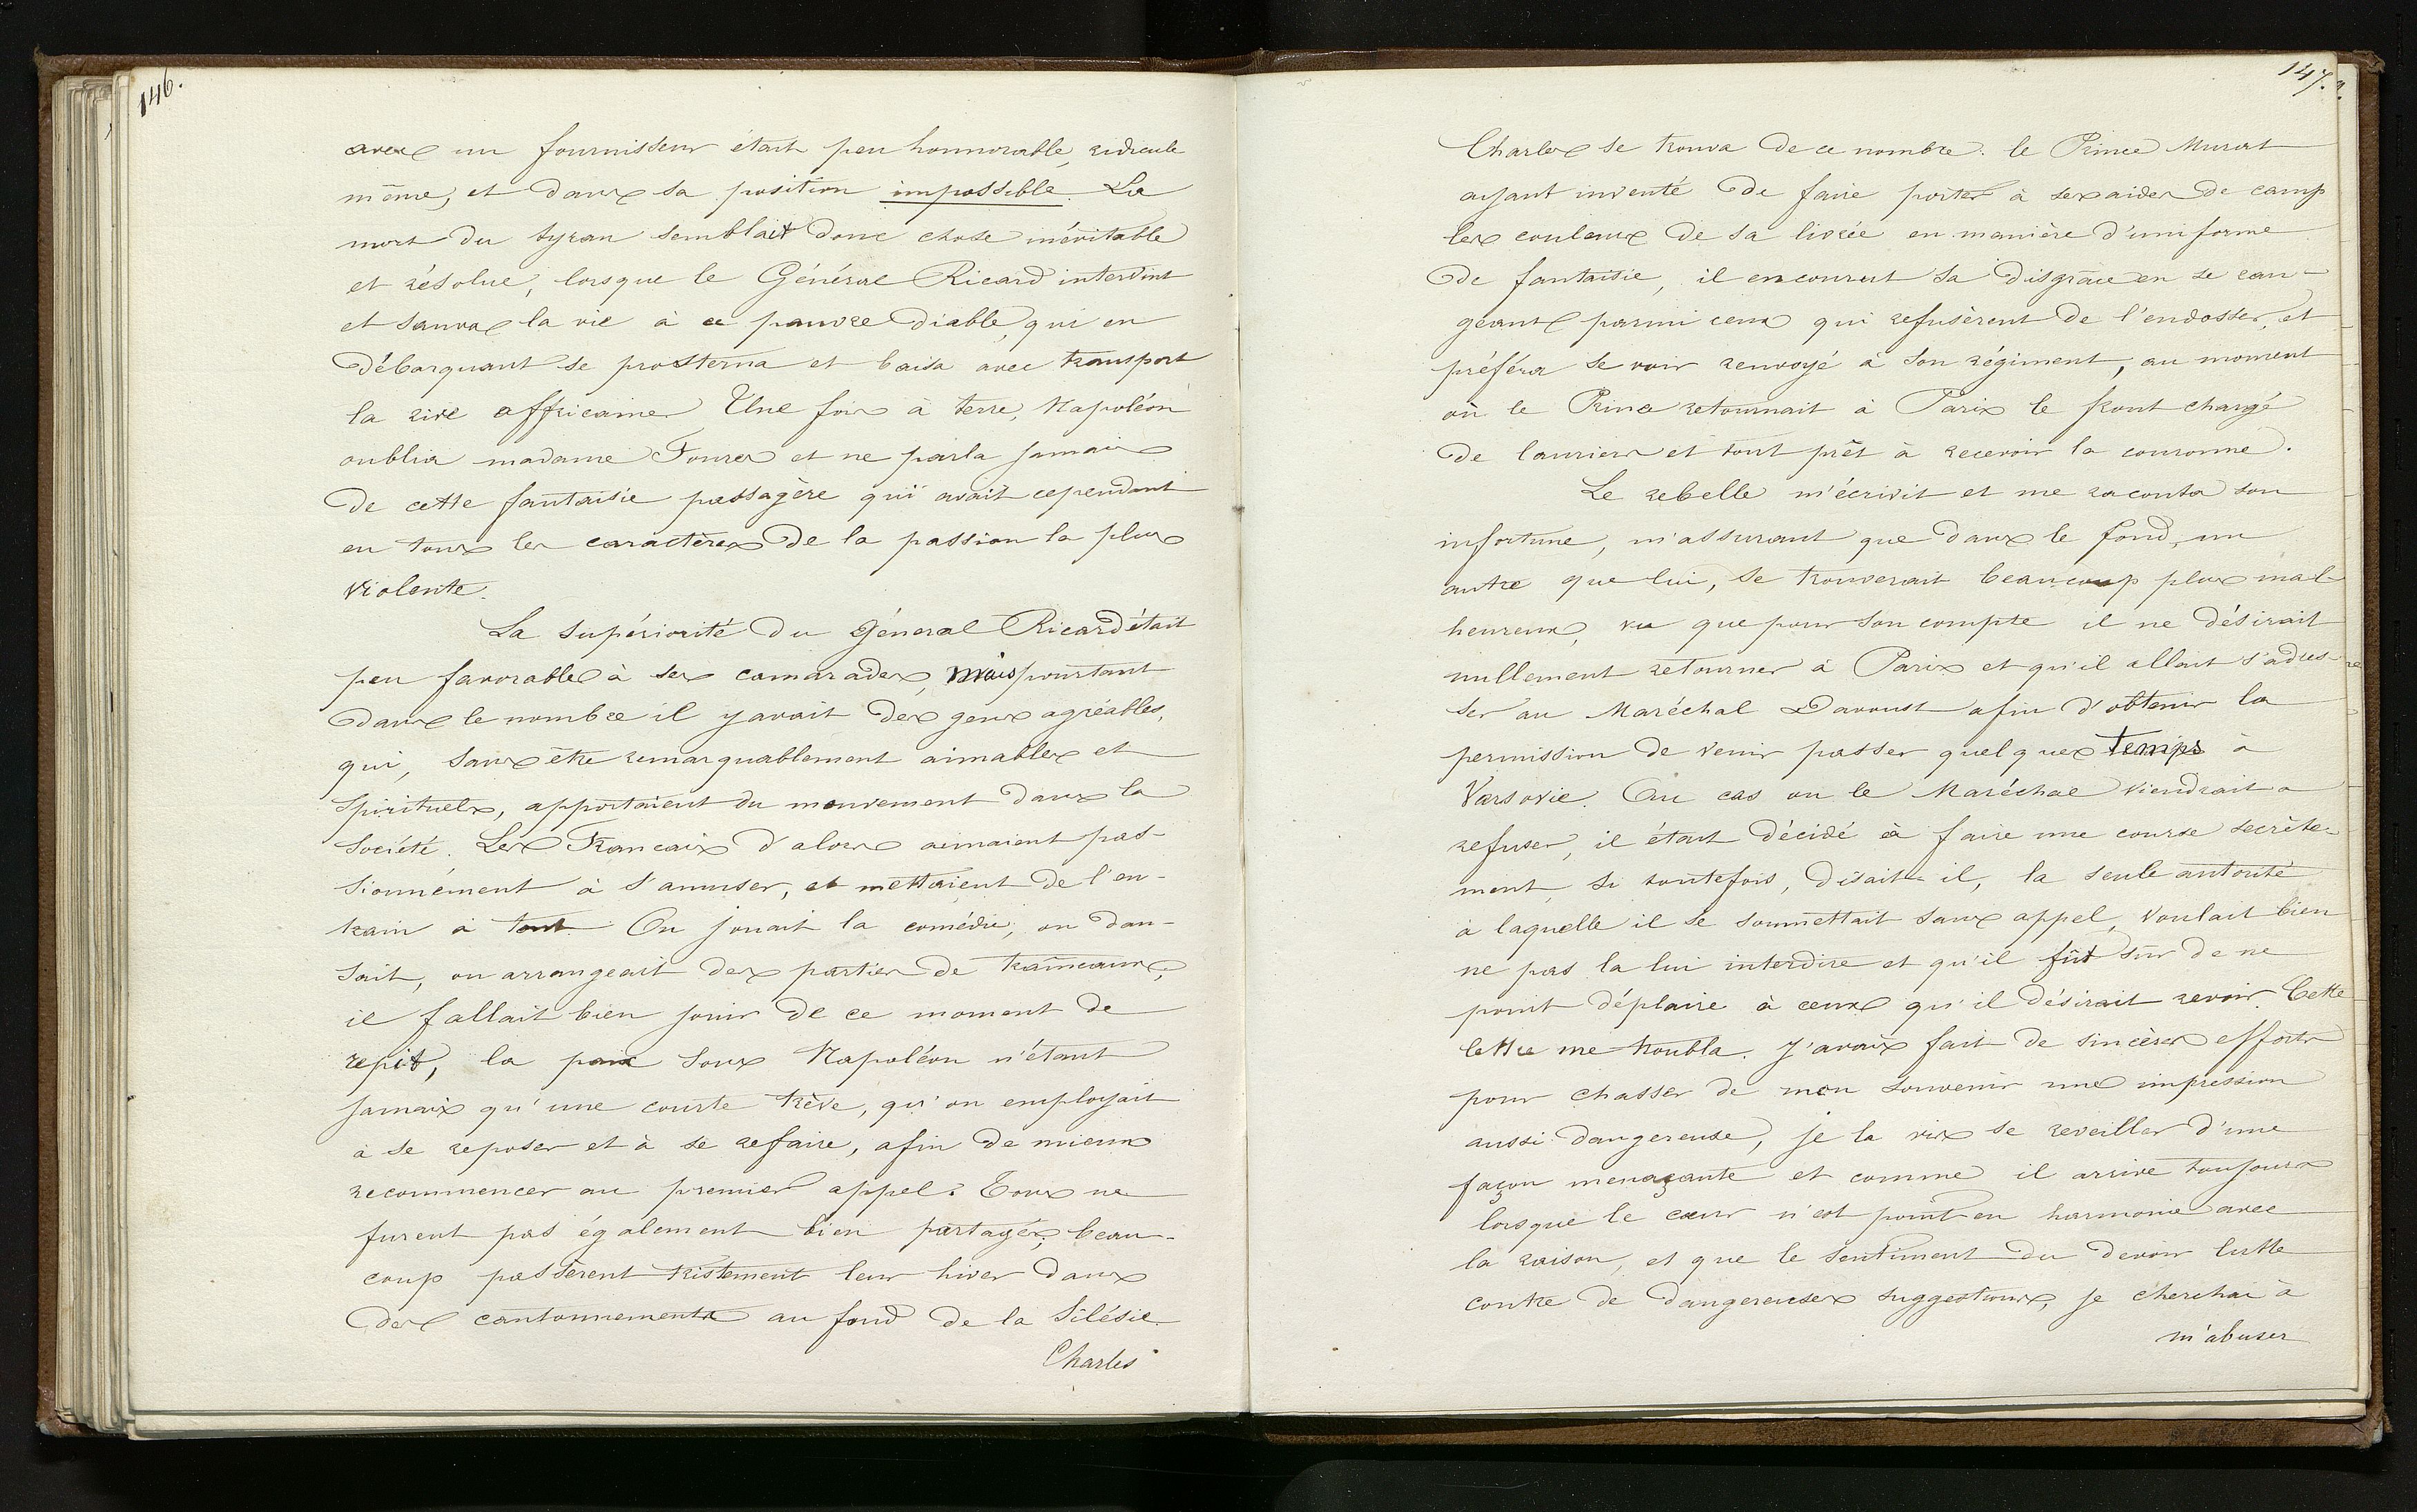 146.
avec un fournisseur était peu honnorable, ridicule
même, et dans sa position impossible. La
mort du tyran semblait donc chose inévitable
et résolue, lorsque le Général Ricard intervint
et sauva la vie à ce pauvre diable, qui en
débarquant se prosterna et baisa avec transport
la rive affricaine. Une fois à terre, Napoléon
oublia madame Foures et ne parla jamais
de cette fantaisie passagère qui avait cependant
eu tous les caractères de la passion la plus
violente.
La supériorité du Géneral Ricard était
peu favorable à ses camarades, mais pourtant
dans le nombre il y avait des gens agréables,
qui, sans être remarquablement aimables et
spirituels, apportaient du mouvement dans la
société. Les Francais d'alors aimaient pas-
sionnément à s'amuser, et mettaient de l'en-
train à tout. On jouait la comédie, on dan-
sait, on arrangeait des parties de traîneaux,
il fallait bien jouir de ce moment de
repit, la paix sous Napoléon n'étant
jamais qu'une courte trève, qu'on employait
à se reposer et à se refaire, afin de mieux
recommencer au premier appel. Tous ne
furent pas également bien partagés; beau-
coup passèrent tristement leur hiver dans
des cantonnements au fond de la Silésie.
Charles
147.
Charles se trouva de ce nombre. le Prince Murat
ayant inventé de faire porter à ses aides de camp
les couleurs de sa livrée en manière d'uniforme
de fantaisie, il encourut sa disgrâce en se ran-
geant parmi ceux qui refusèrent de l'endosser, et
préféra se voir renvoyé à son régiment, au moment
où le Prince retournait à Paris le front chargé
de lauriers et tout prêt à recevoir la couronne.
Le rebelle m'écrivit et me raconta son
infortune, m'assurant que dans le fond, un
autre que lui, se trouverait beaucoup plus mal-
heureux, vu que pour son compte il ne désirait
nullement retourner à Paris et qu'il allait s'adres-
ser au Maréchal Davoust afin d'obtenir la
permission de venir passer quelques temps à
Varsovie. Au cas ou le Maréchal viendrait a
refuser, il était décidé à faire une course secrète-
ment, si toutefois, disait-il, la seule autorité
à laquelle il se soumettait sans appel, voulait bien
ne pas la lui interdire et qu'il fût sûr de ne
point déplaire à ceux qu'il désirait revoir. Cette
lettre me troubla. J'avais fait de sincères efforts
pour chasser de mon souvenir une impression
aussi dangereuse, je la vis se reveiller d'une
façon menaçante et comme il arrive toujours
lorsque le cœur n'est point en harmonie avec
la raison, et que le sentiment du devoir lutte
contre de dangereuses suggestions, je cherchai à
m'abuser